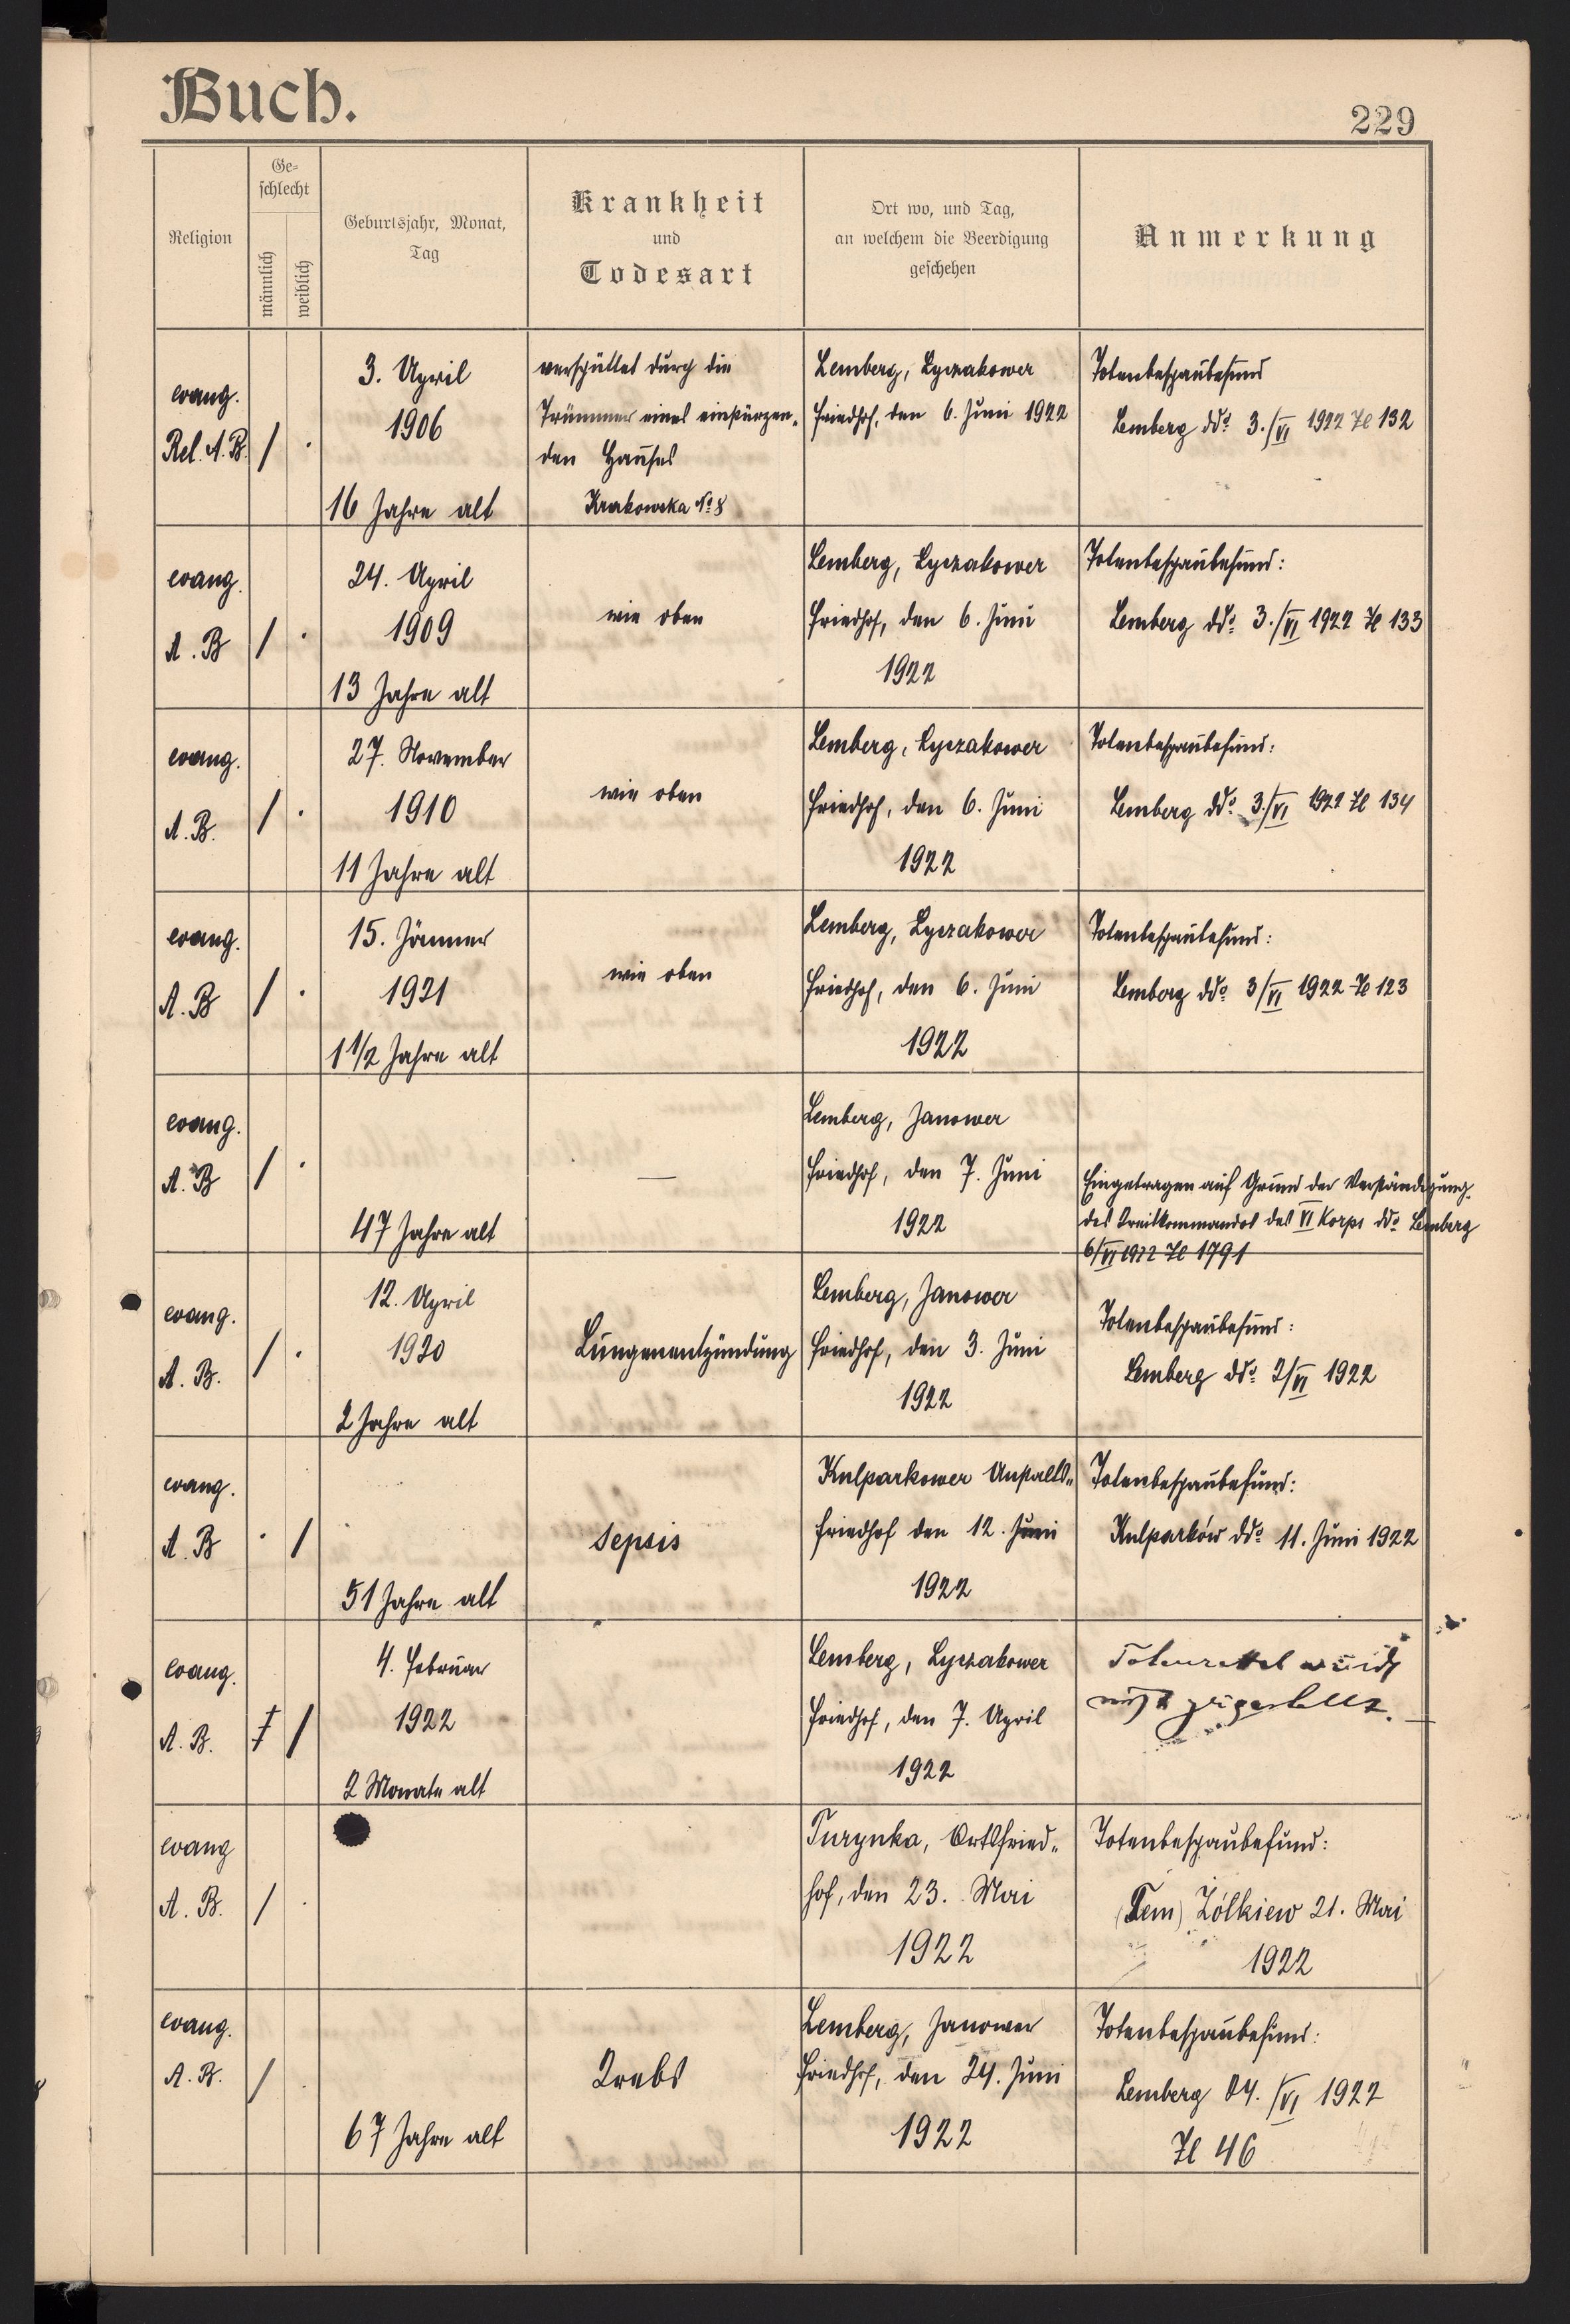 Buch.
229
Religion
Ge-
schlecht
männlich
weiblich
Geburtsjahr, Monat,
Tag
Krankheit
und
Todesart
Ort wo, und Tag,
an welchem die Beerdigung
geschehen
Anmerkung
evang.
Rel. A. B.
/ ·
3. April
1906
16 Jahre alt
verschüttet durch die
Trümmer eines einstürzen„
den Hauses
Krakowska No 8
Lemberg, Lyczakower
Friedhof, den 6. Juni 1922
Totenbeschaubefund
Lemberg ddo 3./VI 1922 Zl 132
evang.
A. B
/ ·
24. April
1909
13 Jahre alt
wie oben
Lemberg, Lyczakower
Friedhof, den 6. Juni
1922
Totenbeschaubefund:
Lemberg ddo 3./VI 1922 Zl 133
evang.
A. B.
/ ·
27. November
1910
11 Jahre alt
wie oben
Lemberg, Lyczakower
Friedhof, den 6. Juni
1922
Totenbeschaubefund:
Lemberg ddo 3./VI 1922 Zl 134
evang.
A. B
/ ·
15. Jänner
1921
1 1/2 Jahre alt
wie oben
Lemberg, Lyczakower
Friedhof, den 6. Juni
1922
Totenbeschaubefund:
Lemberg ddo 3/VI 1922 Zl 123
evang.
A. B
/ ·
47 Jahre alt
—
Lemberg, Janower
Friedhof, den 7. Juni
1922
Eingetragen auf Grund der Verständigung
des des VI Korps ddo Lemberg
6/VI 1922 Zl 1791
evang.
A. B.
/ ·
12. April
1920
2 Jahre alt
Lungenentzündung
Lemberg, Janower
Friedhof, den 3. Juni
1922
Totenbeschaubefund:
Lemberg ddo 2/VI 1922
evang.
A. B
· /
51 Jahre alt
Sepsis
Kulparkower Anstalts„
friedhof den 12. Juni
1922
Totenbeschaubefund:
Kulparków ddo 11. Juni 1922
evang.
A. B.
/
4. Februar
1922
2 Monate alt
Lemberg, Lyczakower
Friedhof, den 7. April
1922
Totenzettel wurde
nicht zugestellt.
evang
A. B.
/ ·
Turynka, Ortsfried„
hof, den 23. Mai
1922
Totenbeschaubefund:
(Tem) Żólkiew 21. Mai
1922
evang.
A. B.
/ ·
67 Jahre alt
Krebs
Lemberg, Janower
Friedhof, den 24. Juni
1922
Totenbeschaubefund:
Lemberg 24. /VI 1922
Zl 46